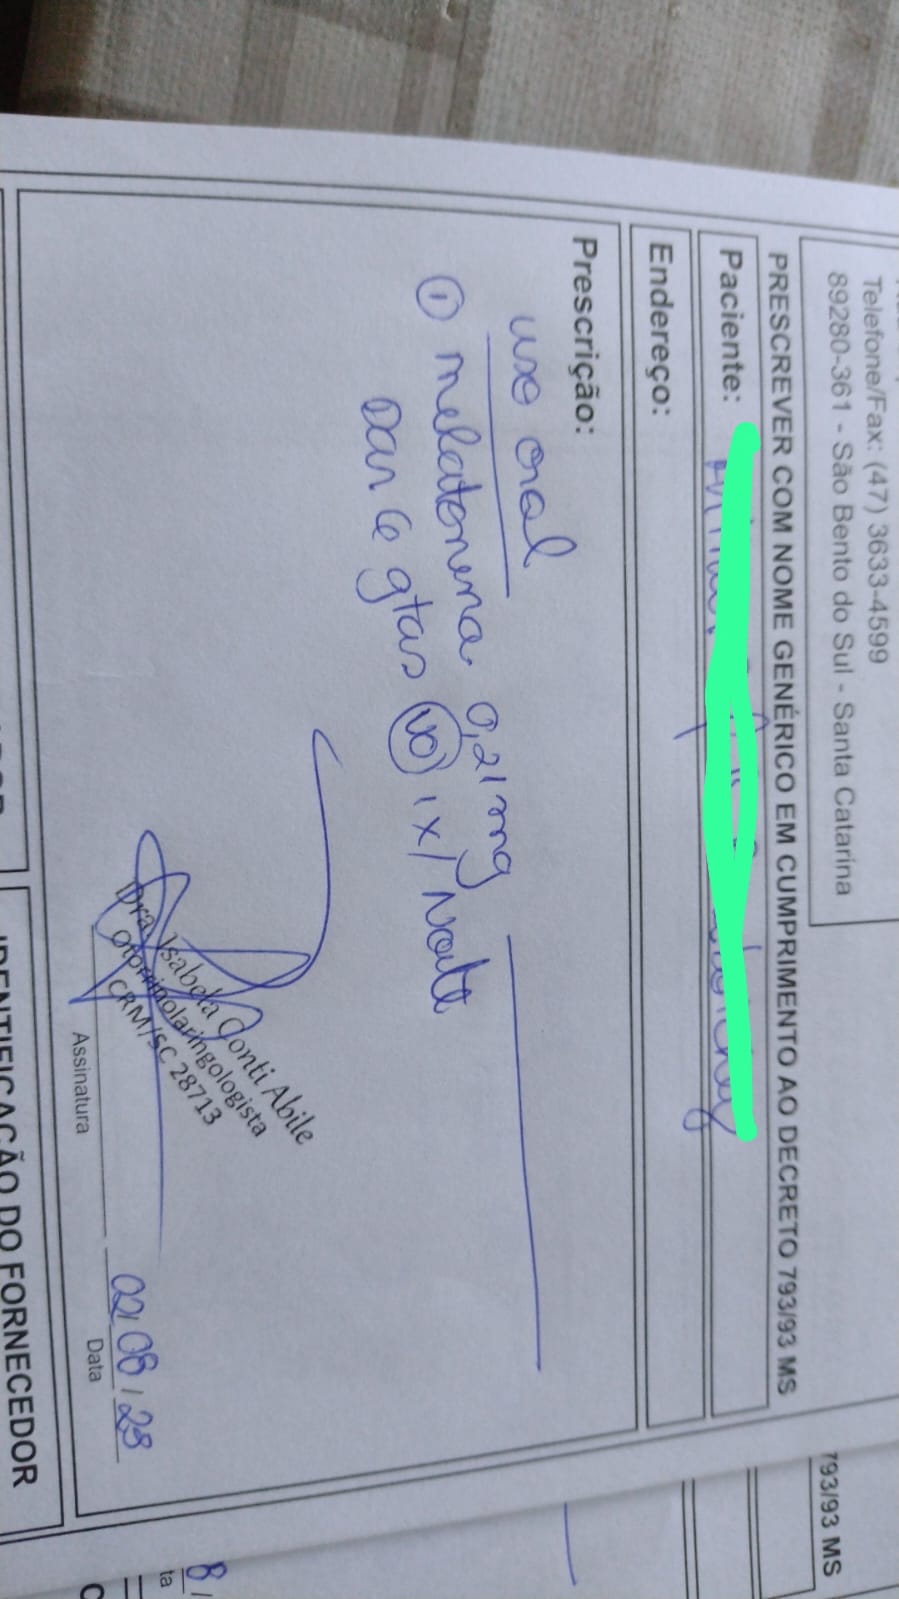 Telefone/Fax: (47) 3633-4599
89280-361 - São Bento do Sul - Santa Catarina
PRESCREVER COM NOME GENÉRICO EM CUMPRIMENTO AO DECRETO 793/93 MS
Paciente:
Endereço:
Prescrição:
uso oral
① melatonena 0,21mg
Dar 6 gtas VO 1x/Noite
Dra. Isabela Conti Abile
Otorrinolaringologista
CRM/SC 28713
02/08/23
Assinatura
Data
IDENTIFICAÇÃO DO FORNECEDOR
793/93 MS